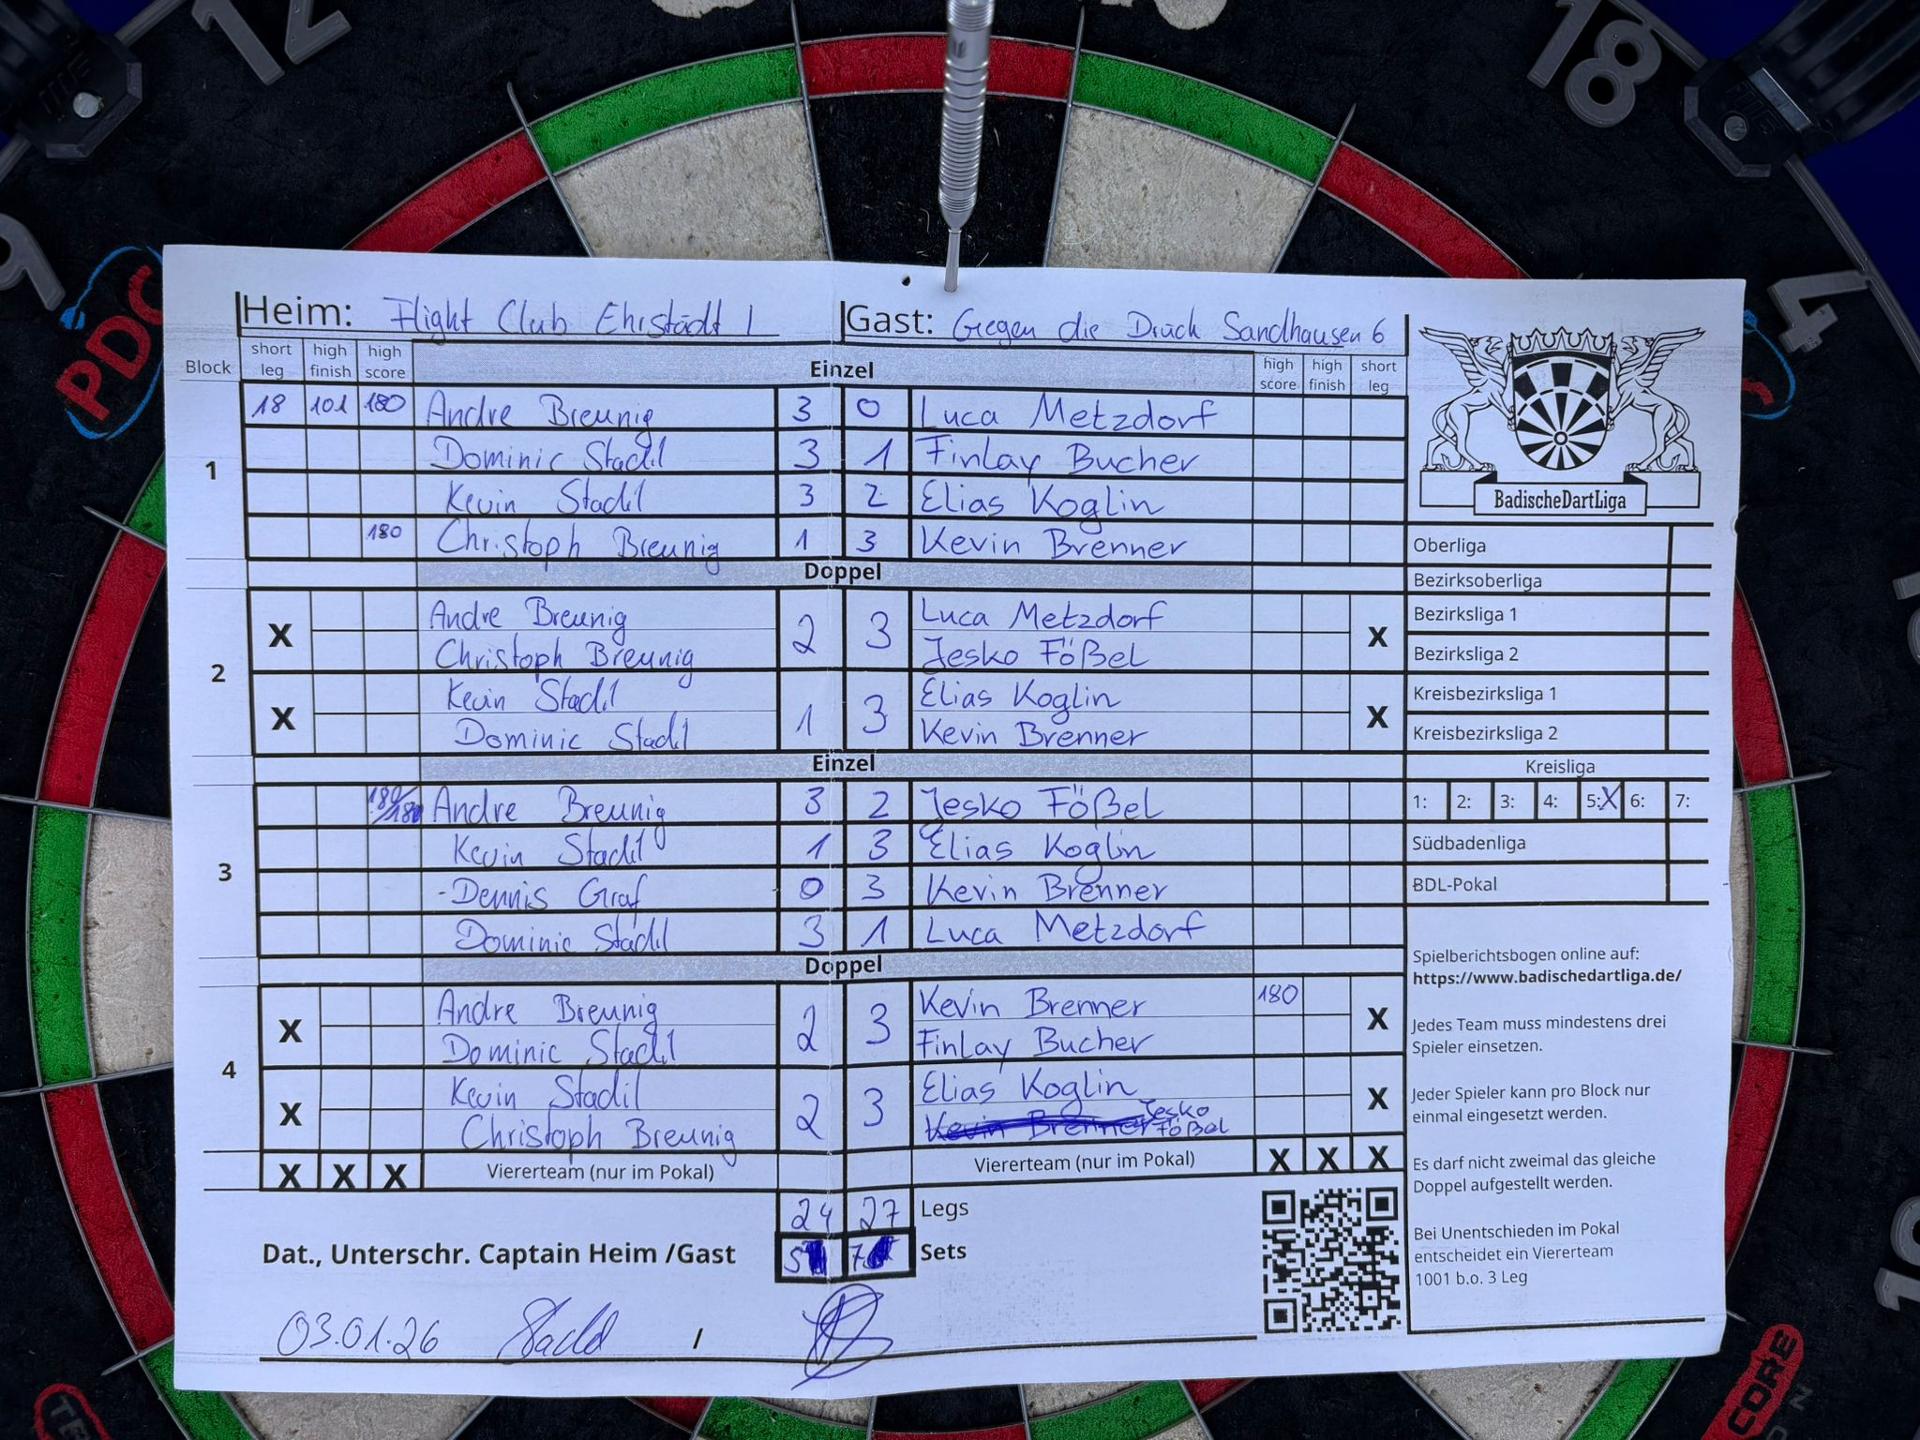 12
18
9
4
PDC
Heim: Flight Club Ehrstädt 1 Gast: Gegen die Druck Sandhausen 6
Block short leg high finish high score Einzel high score high finish short leg
1
18 101 180 Andre Breunig 3 0 Luca Metzdorf
Dominic Stadil 3 1 Finlay Bucher
Kevin Stadil 3 2 Elias Koglin
180 Christoph Breunig 1 3 Kevin Brenner
Doppel
2
X Andre Breunig 2 3 Luca Metzdorf X
Christoph Breunig Jesko Fößel
X Kevin Stadil 1 3 Elias Koglin X
Dominic Stadil Kevin Brenner
Einzel
3
180/180 Andre Breunig 3 2 Jesko Fößel
Kevin Stadil 1 3 Elias Koglin
Dennis Graf 0 3 Kevin Brenner
Dominic Stadil 3 1 Luca Metzdorf
Doppel
4
X Andre Breunig 2 3 Kevin Brenner 180 X
Dominic Stadil Finlay Bucher
X Kevin Stadil 2 3 Elias Koglin X
Christoph Breunig Kevin Brenner Jesko Fößel
X X X Viererteam (nur im Pokal) Viererteam (nur im Pokal) X X X
24 27 Legs
Dat., Unterschr. Captain Heim /Gast 5 7 Sets
03.01.26 /
BadischeDartLiga
Oberliga
Bezirksoberliga
Bezirksliga 1
Bezirksliga 2
Kreisbezirksliga 1
Kreisbezirksliga 2
Kreisliga
1: 2: 3: 4: 5:X 6: 7:
Südbadenliga
BDL-Pokal
Spielberichtsbogen online auf:
https://www.badischedartliga.de/
Jedes Team muss mindestens drei
Spieler einsetzen.
Jeder Spieler kann pro Block nur
einmal eingesetzt werden.
Es darf nicht zweimal das gleiche
Doppel aufgestellt werden.
Bei Unentschieden im Pokal
entscheidet ein Viererteam
1001 b.o. 3 Leg
CORE